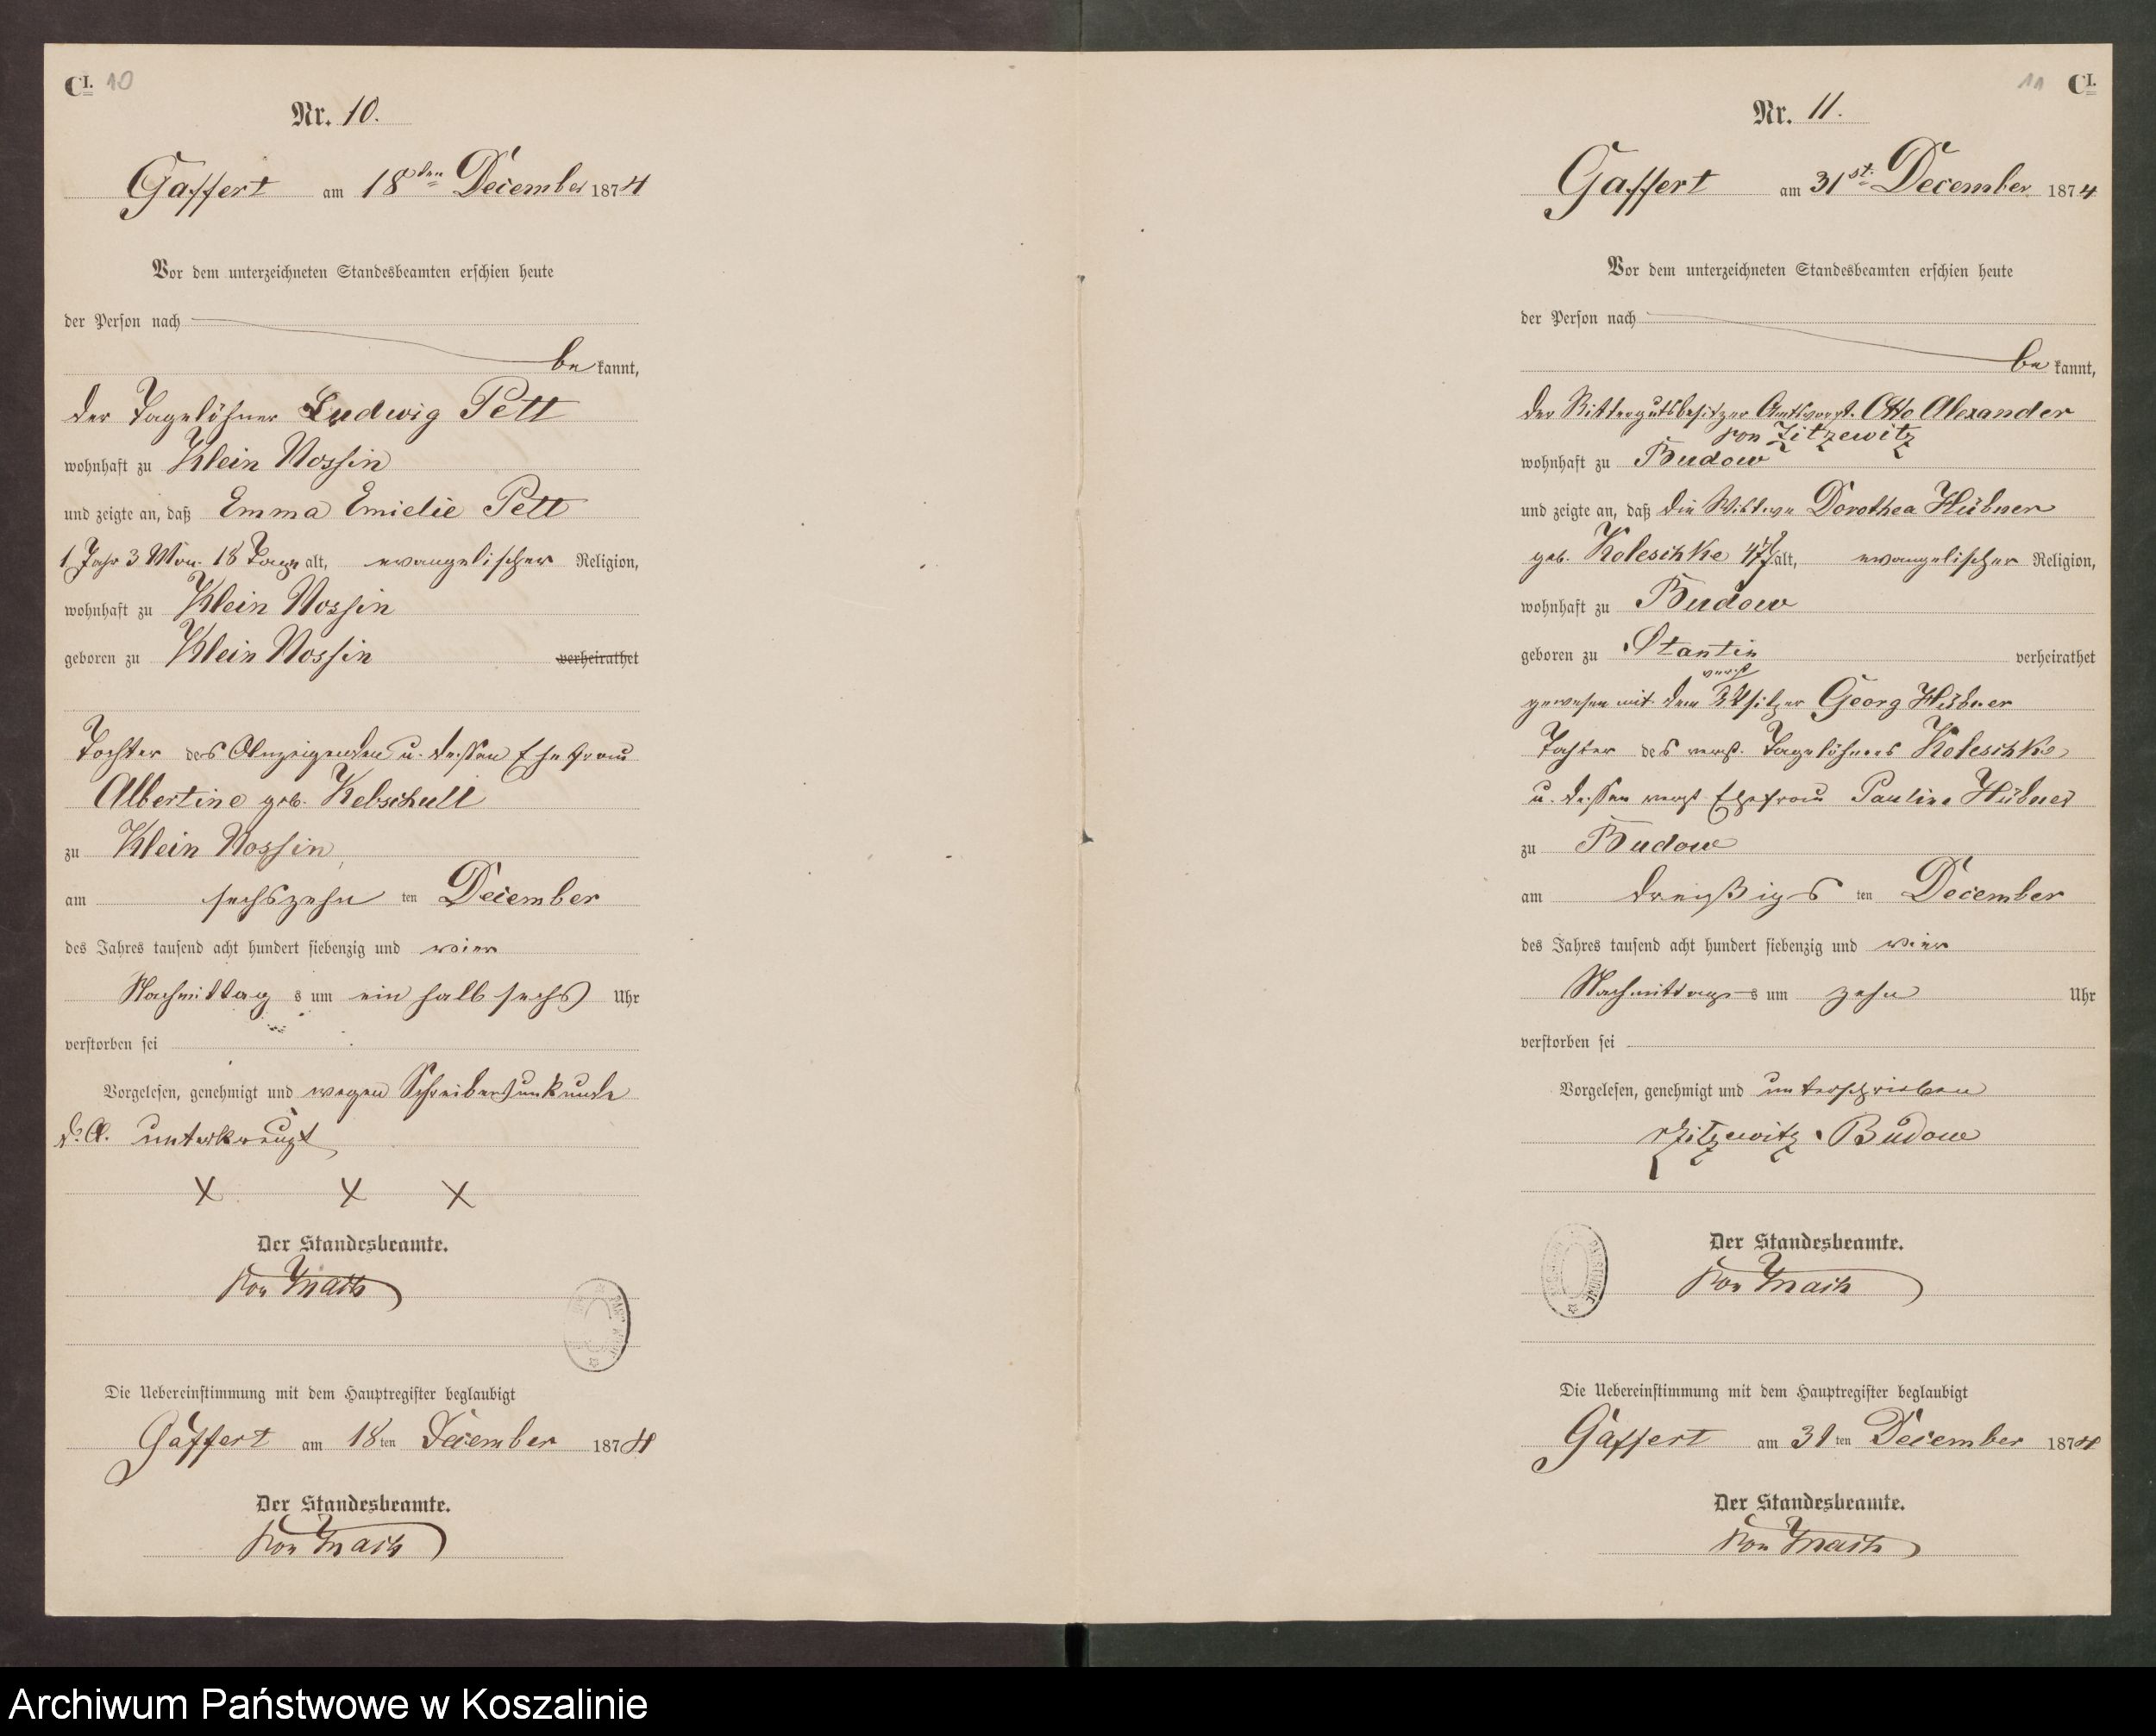 CI. 10
Nr. 10.
Gaffert am 18ten December 1874
Vor dem unterzeichneten Standesbeamten erschien heute
der Person nach
bekannt,
der Tagelöhner Ludwig Pett
wohnhaft zu Klein Nossin
und zeigte an, daß Emma Emielie Pett
1 Jahr 3 Mon. 18 Tage alt, evangelischer Religion,
wohnhaft zu Klein Nossin
geboren zu Klein Nossin verheirathet
Tochter des Anzeigenden u. dessen Ehefrau
Albertine geb. Kebschull
zu Klein Nossin
am sechszehn ten December
des Jahres tausend acht hundert siebenzig und vier
Nachmittag s um ein halb sechs Uhr
verstorben sei
Vorgelesen, genehmigt und wegen Schreibensunkunde
unterkreuzt
X X X
Der Standesbeamte.
von
Die Uebereinstimmung mit dem Hauptregister beglaubigt
Gaffert am 18ten December 1874
Der Standesbeamte.
von
11 CI.
Nr. 11.
Gaffert am 31st. December 1874
Vor dem unterzeichneten Standesbeamten erschien heute
der Person nach
bekannt,
der Rittergutsbesitzer Amtsvorst. Otto Alexander
von Zitzewitz
wohnhaft zu Budow
und zeigte an, daß die Wittwe Dorothea Hübner
geb. Koleschke 47 J alt, evangelischer Religion,
wohnhaft zu Budow
geboren zu Stantin verheirathet
verst
gewesen mit dem Georg Hübner
Tochter des verst. Tagelöhners Koleschke
u. dessen verst Ehefrau Pauline Hübner
zu Budow
am dreißigs ten December
des Jahres tausend acht hundert siebenzig und vier
Nachmittags um zehn Uhr
verstorben sei
Vorgelesen, genehmigt und unterschrieben
Zitzewitz Budow
Der Standesbeamte.
von
Die Uebereinstimmung mit dem Hauptregister beglaubigt
Gaffert am 31ten December 1874
Der Standesbeamte.
von
Archiwum Państwowe w Koszalinie